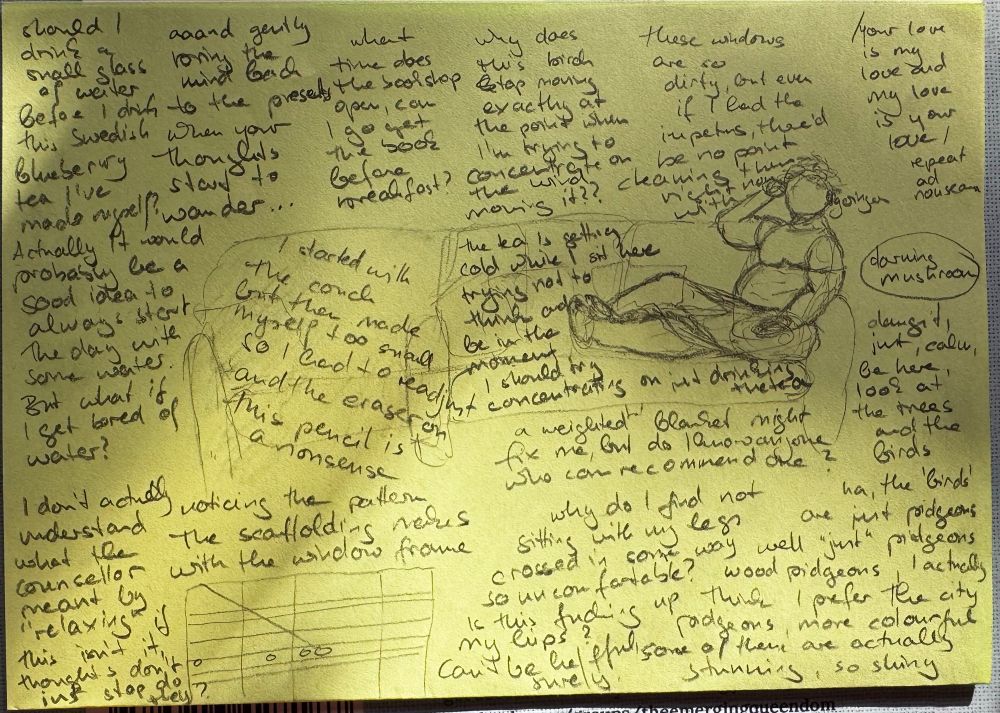 should I
drink a
small glass
of water
before I drink
this Swedish
blueberry
tea I've
made myself?
Actually it would
probably be a
good idea to
always start
the day with
some water.
But what if
I get bored of
water?
aaand gently
bring the
mind back
to the present
when your
thoughts
start to
wander...
what
time does
the bookshop
open, can
I go get
the book
before
breakfast?
why does
this birch
stop moving
exactly at
the point when
I'm trying to
concentrate on
the wind
moving it??
these windows
are so
dirty, but even
if I had the
impetus, there'd
be no point
cleaning them
right now
with
/your love
is my
love and
my love
is your
love/
repeat
ad
nauseam
I started with
the couch
but then made
myself too small
so I had to readj
and the eraser on
this pencil is
a nonsense
the tea is getting
cold while I sit here
trying not to
think and
be in the
moment
I should try
just concentrating on just drinking
the tea
darning
mushroom
damnit,
just, calm,
be here,
look at
the trees
and the
birds
a weighted blanket might
fix me, but do I know anyone
who can recommend one?
I don't actually
understand
what the
counsellor
meant by
"relaxing" if
this isn't it,
thoughts don't
just stop do
they?
noticing the pattern
the scaffolding makes
with the window frame
why do I find not
sitting with my legs
crossed in some way
so uncomfortable?
Is this fucking up
my hips?
Can't be helpful
surely.
ha, the 'birds'
are just pidgeons
well "just" pidgeons
wood pidgeons, I actually
think I prefer the city
pidgeons, more colourful
some of them are actually
stunning, so shiny
/theemergingqueendom